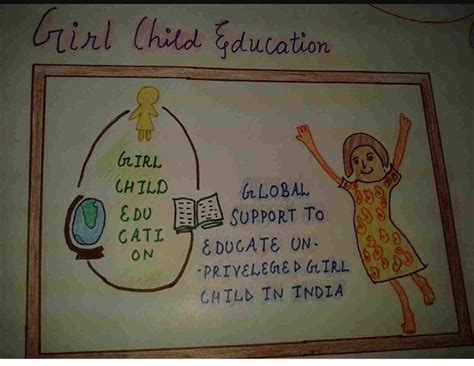 Girl Child Education
GIRL
CHILD
EDU
CATI
ON
GLOBAL
SUPPORT TO
EDUCATE UN-
-PRIVELEGED GIRL
CHILD IN INDIA